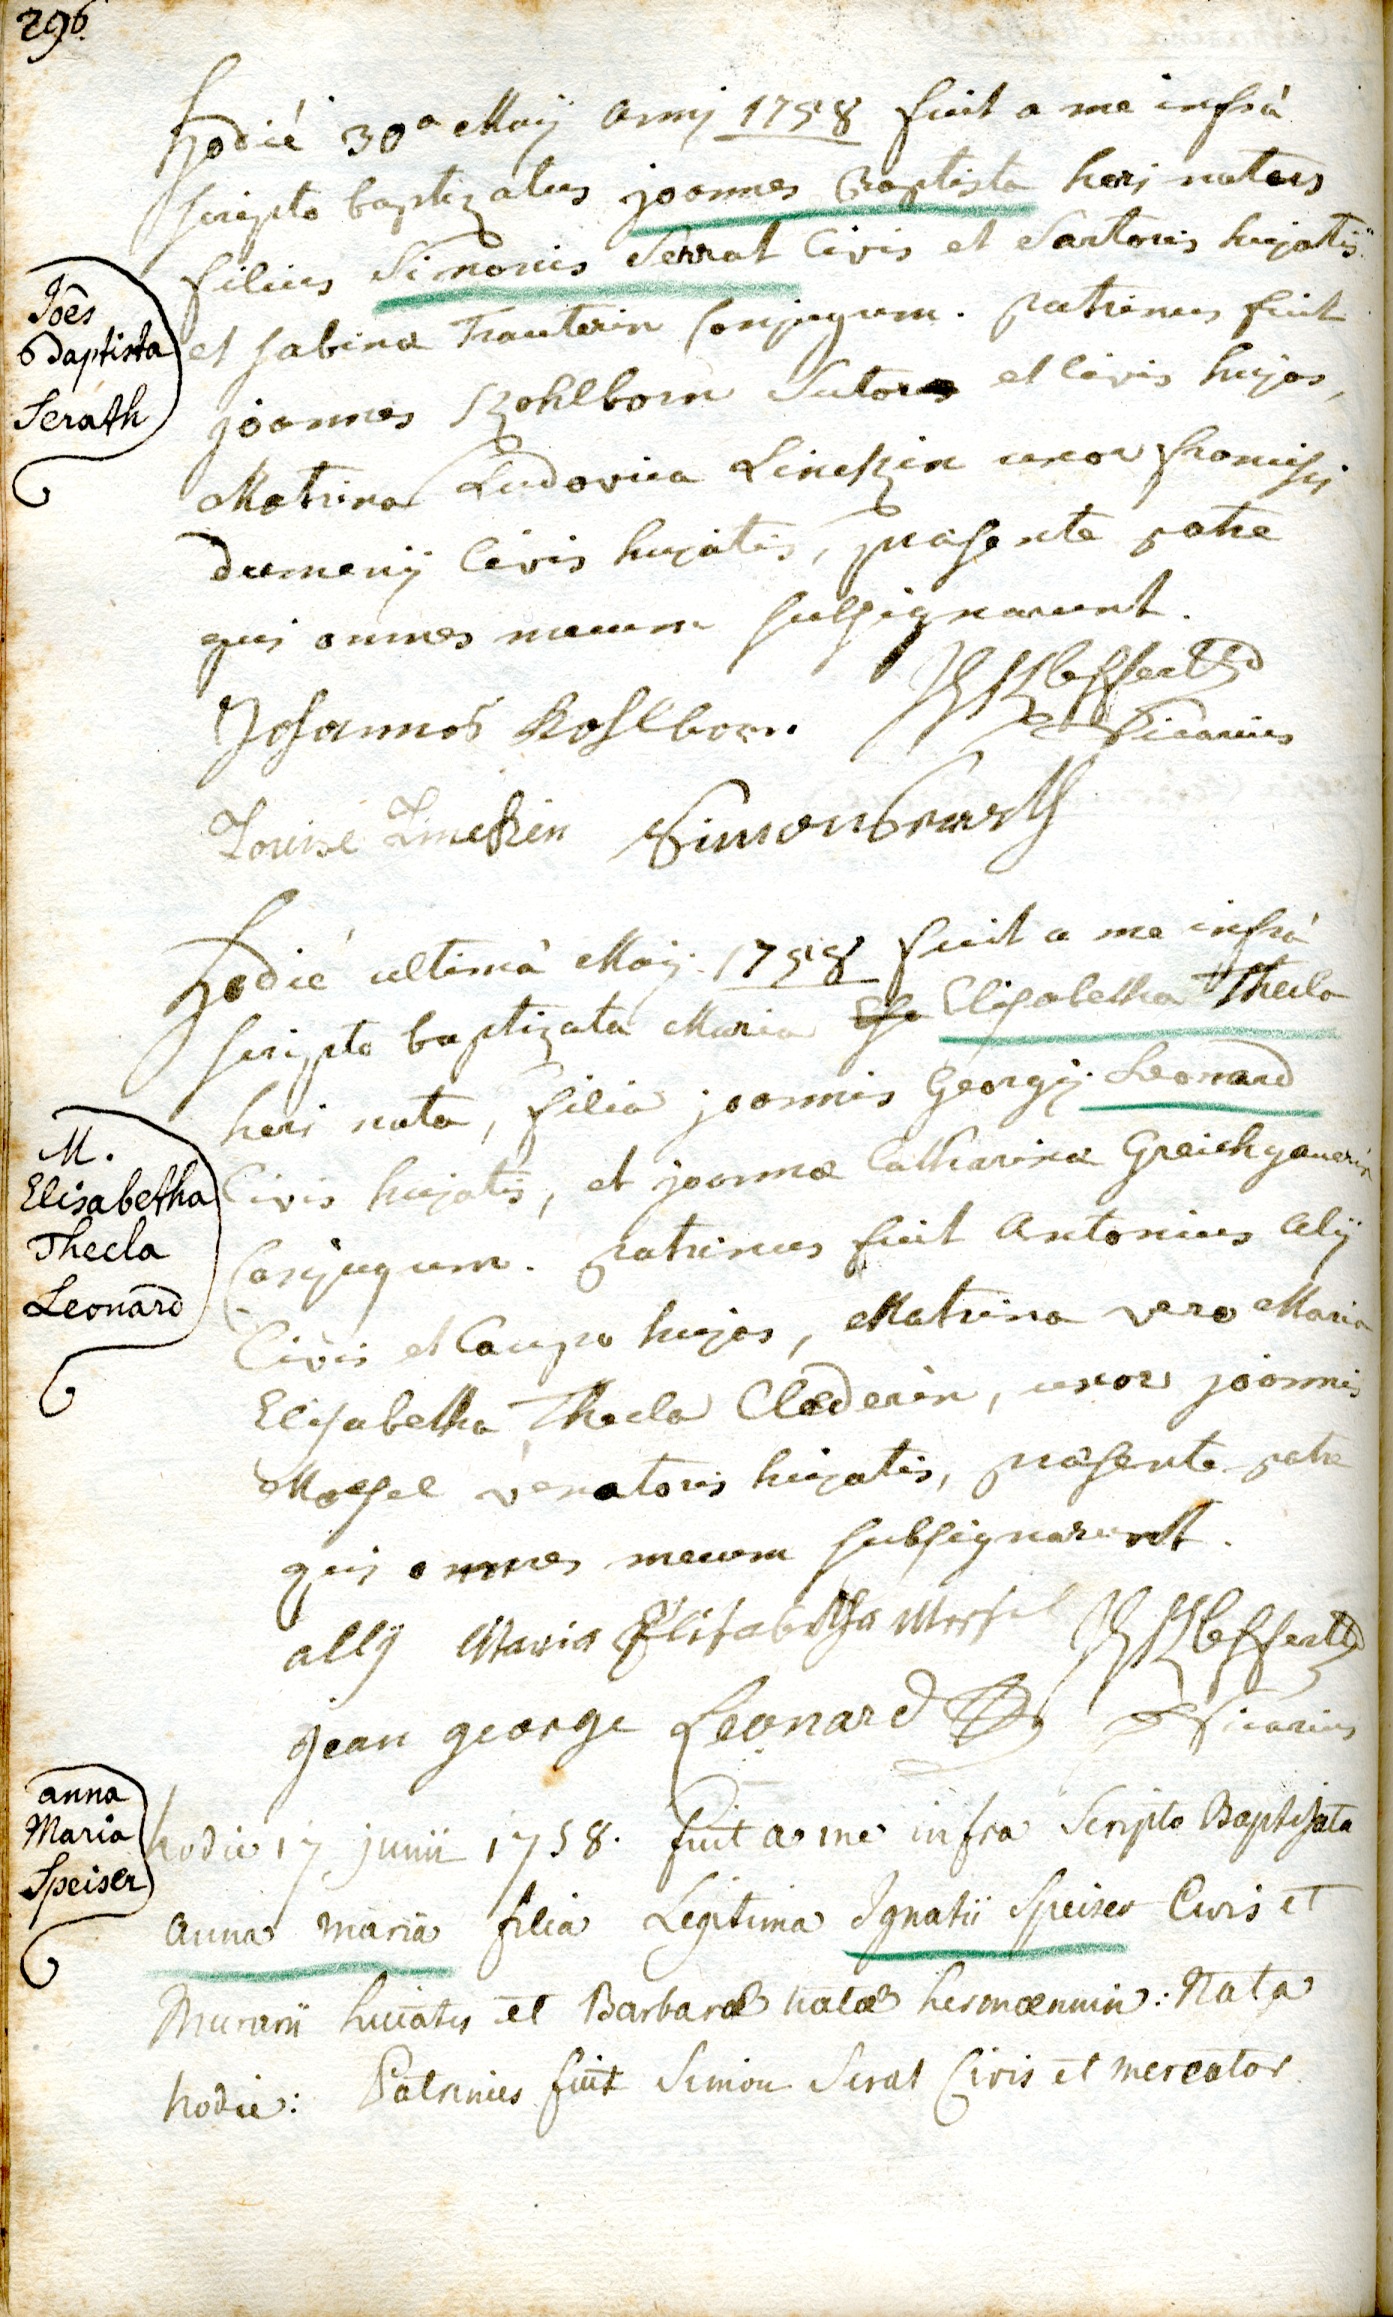 296.
Hodié 30a Maij Annj 1758 fuit a me infrà
scripto baptizatus joannes Baptista heri natus
filius Simonis Serrat Civis et Sartoris hujatis
et sabina Trauterin Conjugum. patrinus fuit
joannes Kohlborn Sutor et Civis hujas,
Matrina Ludovica Linckin uxor francisci
dumenij Civis hujatis, præsente patre
qui omnes mecum subsignarunt.
Johannes Kohlborn
Vicarius
Louise Linckin Simon
Joês
Baptista
Serath
Hodié ultimâ Maij 1758 fuit a me infrà
scripto baptizata Maria Elisabetha Thecla
heri nata, filia joannis Georgij Leonard
Civis hujatis, et joannæ Catharina Greichgauerin
Conjugum. patrinus fuit Antonius Alij
Civis et Caupo hujas, Matrina vero Maria
Elisabetha Thecla Clæderin, uxor joannis
venatoris hujatis, præsente patre
qui omnes mecum subsignarunt.
allÿ Maria Elisabetha
jean george Leonard Vicarius
M.
Elisabetha
Thecla
Leonard
hodie 17 junii 1758. fuit a me infra Scripto Baptisata
anna maria filia Legitima Ignatii Speiser Civis et
Murarii huiatis et Barbaræ natæ hermænnin: Nata
hodie: Patrinus fuit Simon Serat Civis et mercator
anna
Maria
Speiser